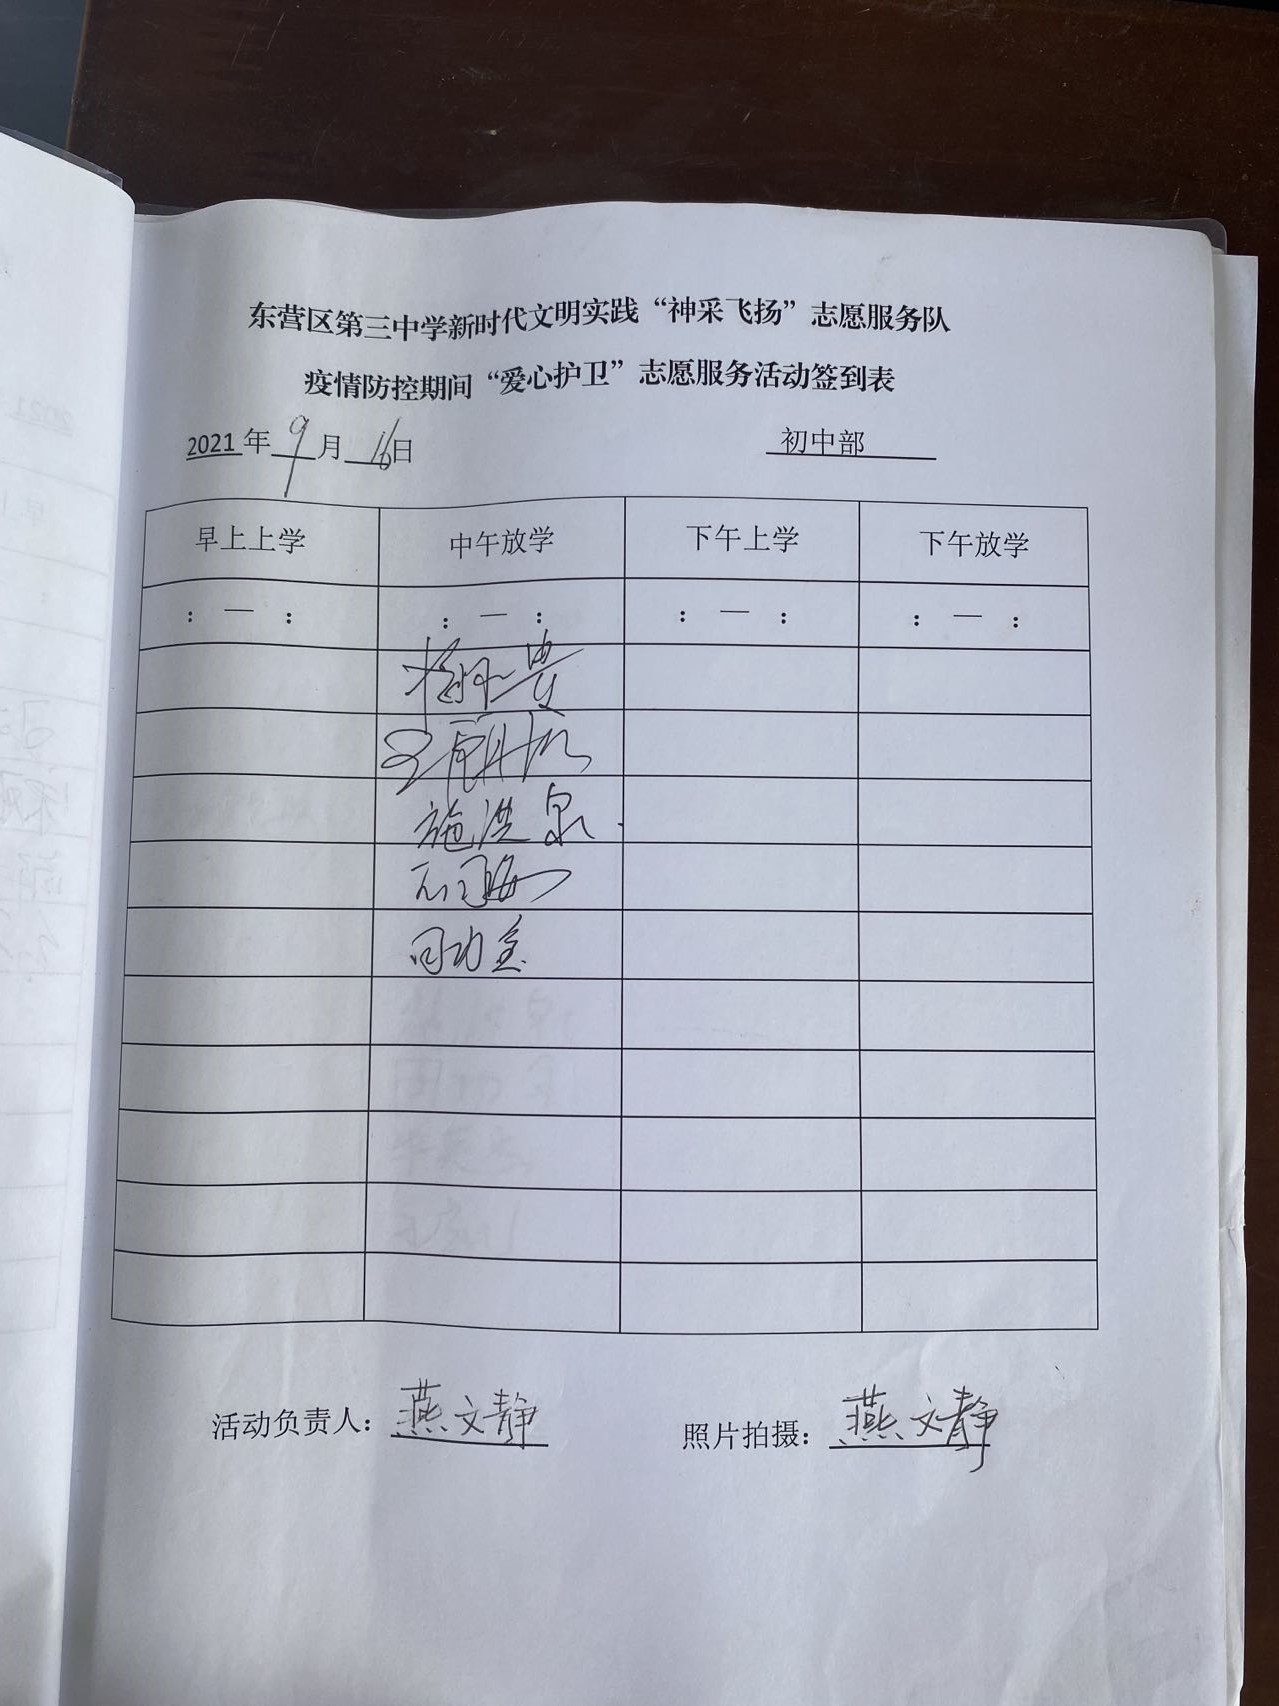 东营区第三中学新时代文明实践“神采飞扬”志愿服务队
疫情防控期间“爱心护卫”志愿服务活动签到表
2021 年 9 月 16 日 初中部
早上上学 中午放学 下午上学 下午放学
: — : : — : : — : : — :
施洪泉
活动负责人：燕文静 照片拍摄：燕文静